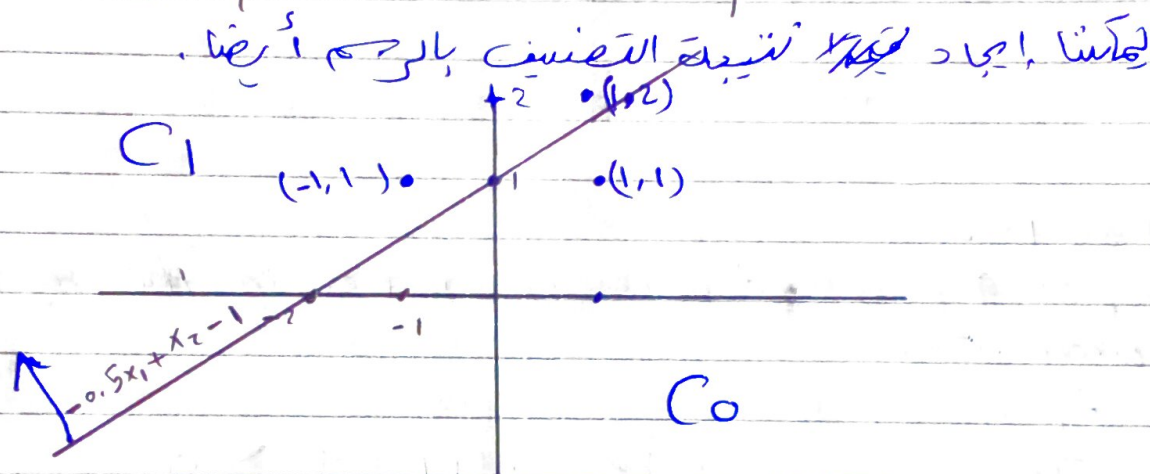 يمكننا إيجاد نتيجة التصنيف بالرسم أيضا.
2
(1,2)
C1
(-1,1)
1
(1,1)
-2
-1
-0.5x₁+x₂-1
C0